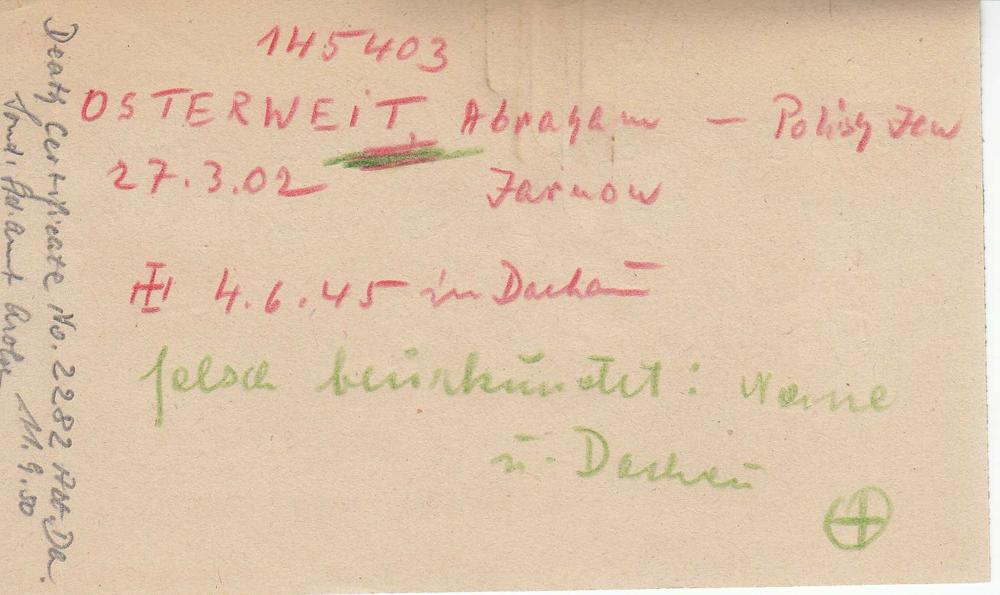 145403
OSTERWEIT, Abraham — Polish Jew
27.3.02 Tarnow
4.6.45 in Dachau
falsch beurkundet: Name
u. Dachau
Death Certificate No. 2282 Abt. Da.
Sond. St. Amt Arolsen 11.9.50